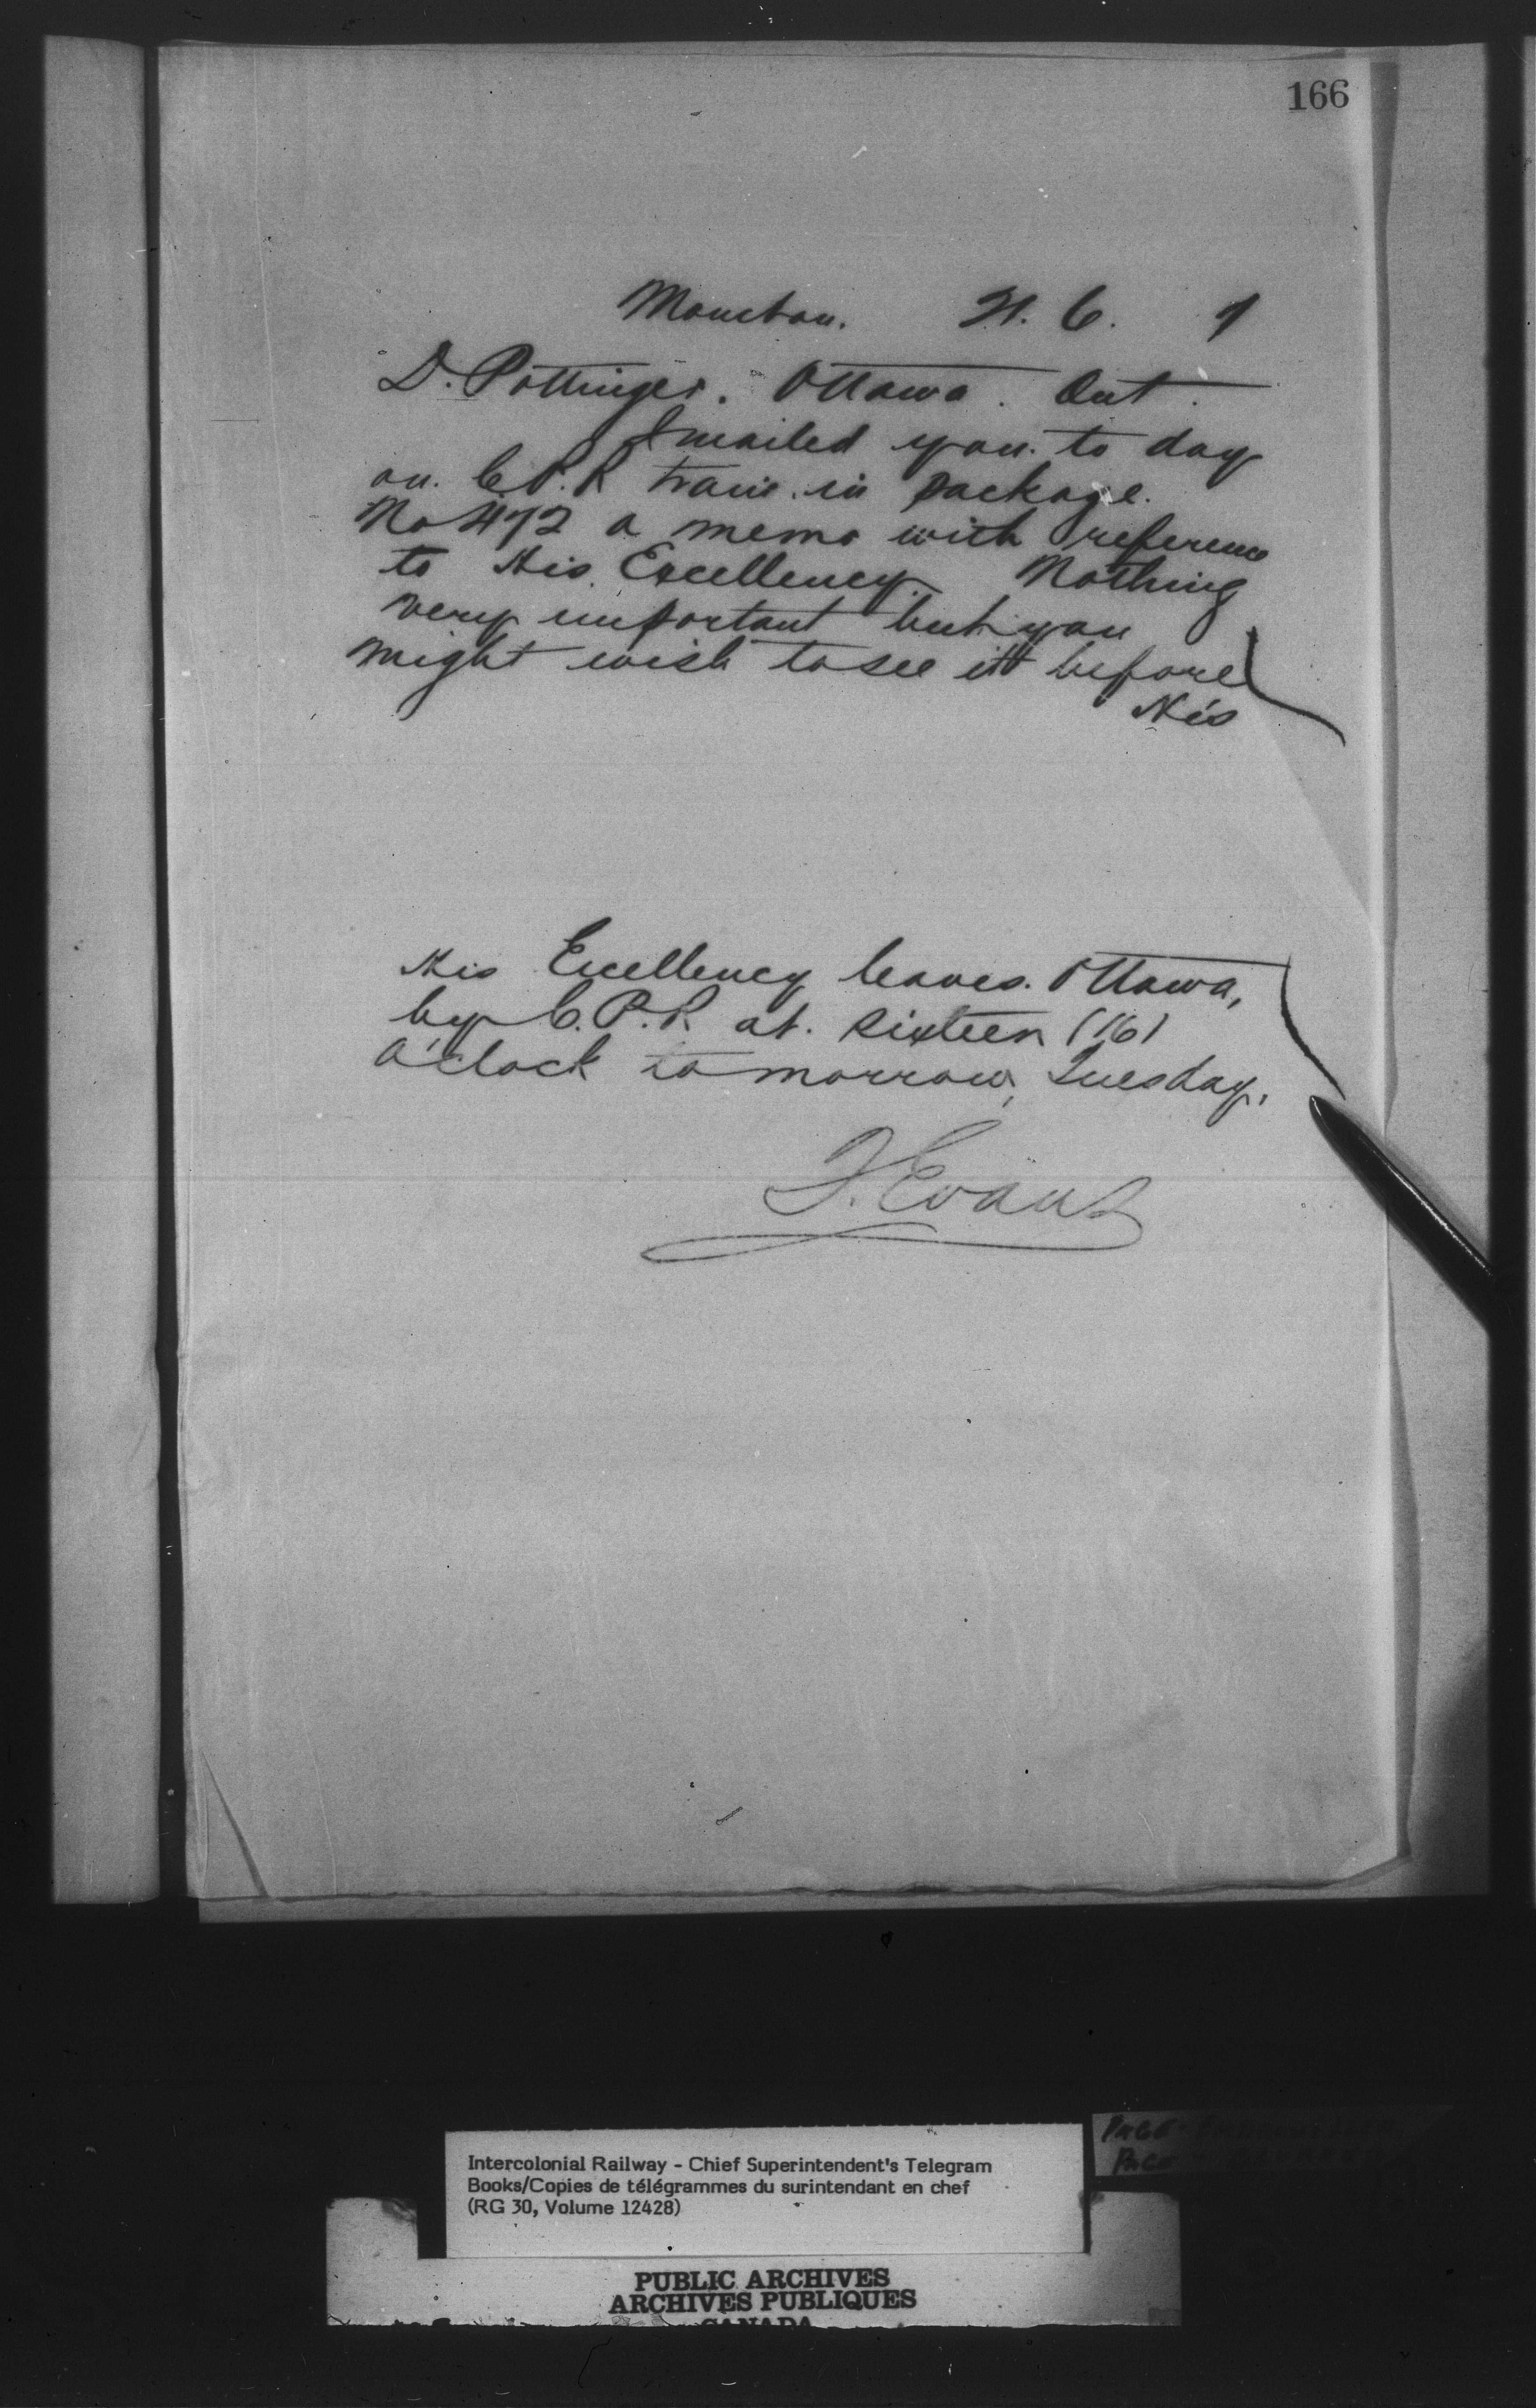 166
Moncton. 21. 6. 9
D. Pottinger. Ottawa. Ont.
I mailed you to day
on C.P.R train in package
No 472 a memo with reference
to His Excellency. Nothing
very important but you
might wish to see it before
His
His Excellency leaves Ottawa,
by C.P.R at sixteen (16)
O'clock tomorrow, Tuesday.
T. Evans
Intercolonial Railway - Chief Superintendent's Telegram
Books/Copies de télégrammes du surintendant en chef
(RG 30, Volume 12428)
PUBLIC ARCHIVES
ARCHIVES PUBLIQUES
CANADA